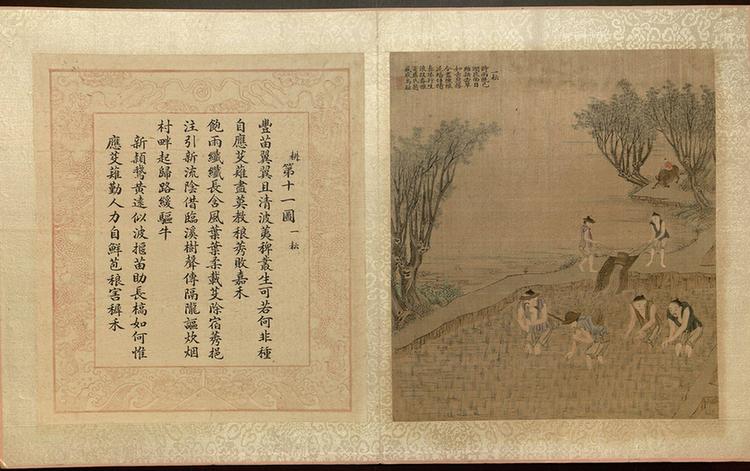 一耘
時雨既已
耕 第十一圖 一耘
豐苗翼翼且清波荑稗叢生可若何非種
自應芟薙盡莫教稂莠敗嘉禾
飽雨纖纖長含風葉葉柔載芟除宿莠挹
注引新流陰借臨溪樹聲傳隔隴謳炊烟
村畔起歸路緩驅牛
新頴鵞黃遠似波揠苗助長槁如何惟
應芟薙勤人力自鮮苞稂害稺禾